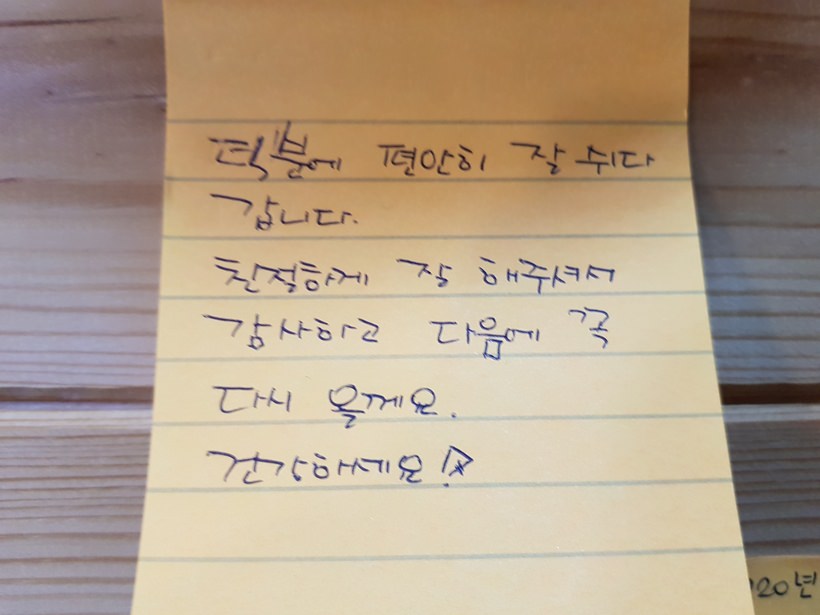 덕분에 편안히 잘 쉬다
갑니다.
친절하게 잘 해주셔서
감사하고 다음에 꼭
다시 올게요.
건강하세요!
20년